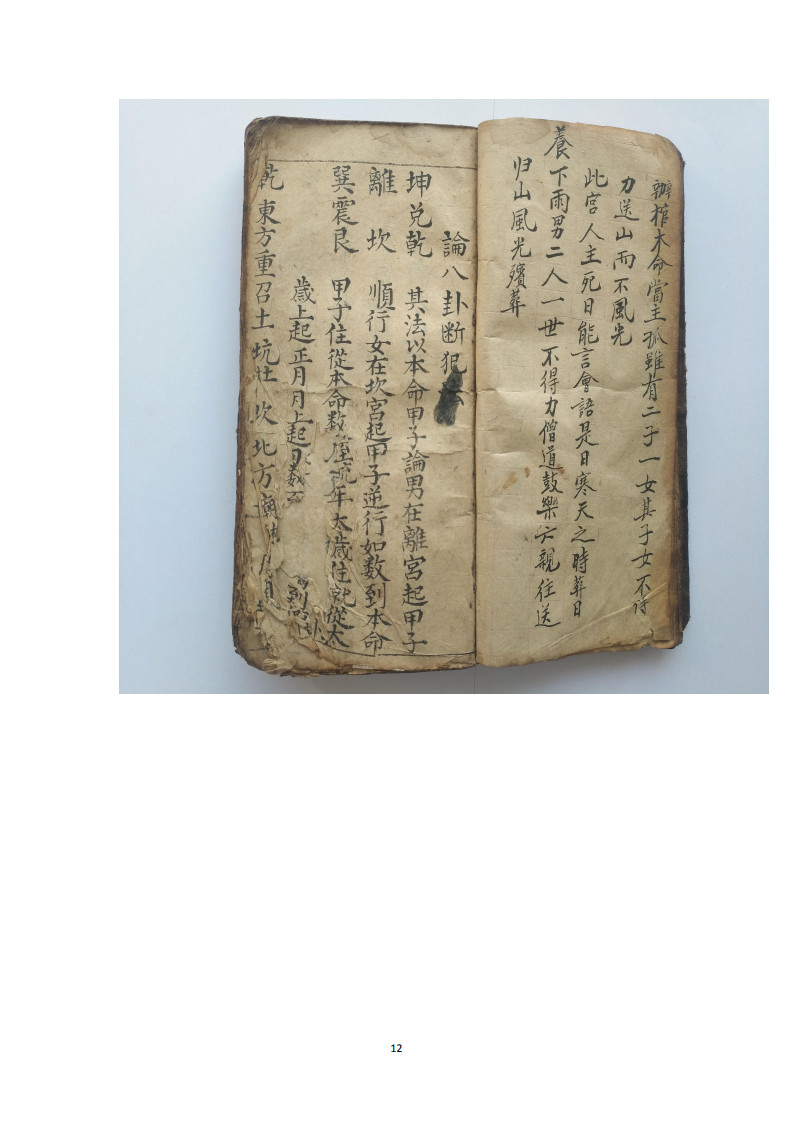 辦棺木命當主孤雖有二子一女其子女不得
力送山而不風光
此宮人主死日能言會語是日寒天之時葬日
養下雨男二人一世不得力僧道鼓樂六親往送
归山風光殯葬
論八卦断犯
坤兑乾 其法以本命甲子論男在離宮起甲子
離坎 順行女在坎宮起甲子逆行如数到本命
巽震艮 甲子住從本命数 年太歲住就從太
歲上起正月月上起 数至
乾東方重召土坑 坎北方廟
12